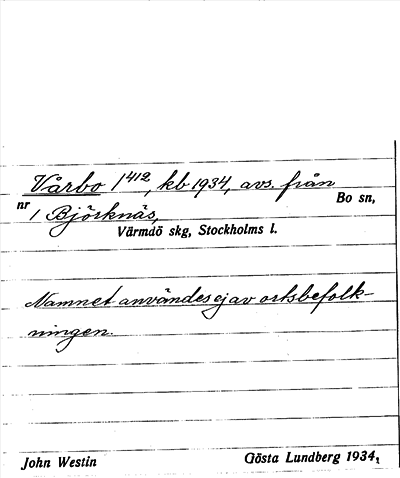 Vårbo 1⁴¹², kb 1934, avs. från
nr Bo sn,
1 Björknäs,
Värmdö skg, Stockholms l.
Namnet användes ej av ortsbefolk-
ningen.
John Westin Gösta Lundberg 1934,